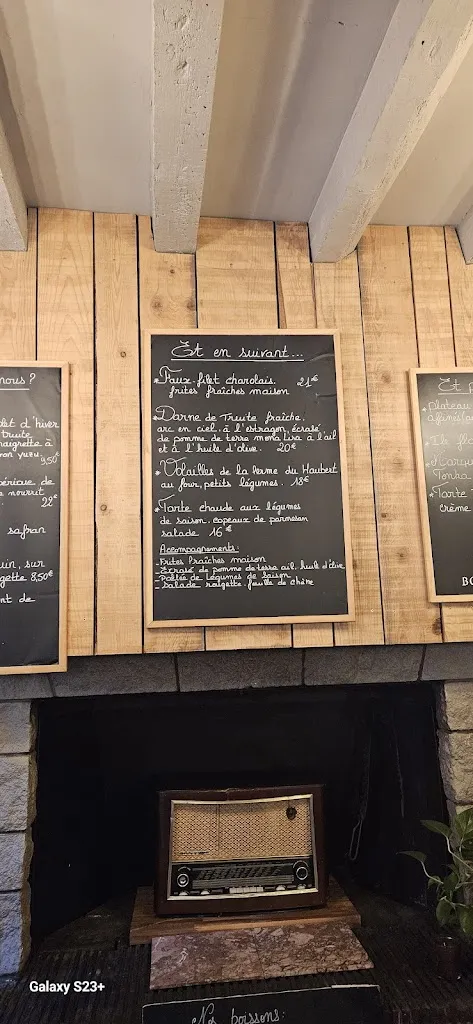 nous ?
d'hiver
truite
naigrette à
yuzu
9,50€
de
nourrit
22€
safran
uin, sur
8,50€
nt de
Et en suivant...
Faux-filet charolais. 21€
frites fraîches maison
Darne de Truite fraîche.
arc en ciel. à l'estragon, écrasé
de pomme de terre mona lisa à l'ail
et à l'huile d'olive. 20€
Volailles de la ferme du Haubert
au four, petits légumes. 18€
Tarte chaude aux légumes
de saison. copeaux de parmesan
salade 16€
Accompagnements:
-Frites fraîches maison
-Écrasé de pomme de terre ail. huile d'olive
-Poêlée de légumes de saison
-Salade rougette. feuille de chêne
Et
plateau
Tonka
Tarte
crème
Nos poissons:
Galaxy S23+